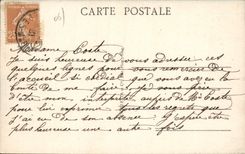 CARTE POSTALE
Madame Coste
Je suis heureuse de vous adresser ces
quelques lignes pour vous remercier de
l'accueil si cordial que vous avez eu la
bonté de me faire je vous prie
d'être mon interprète auprès de Mr Coste
pour lui exprimer tous les regrets que
j'ai eu de son absence J'espère être
plus heureuse une autre fois